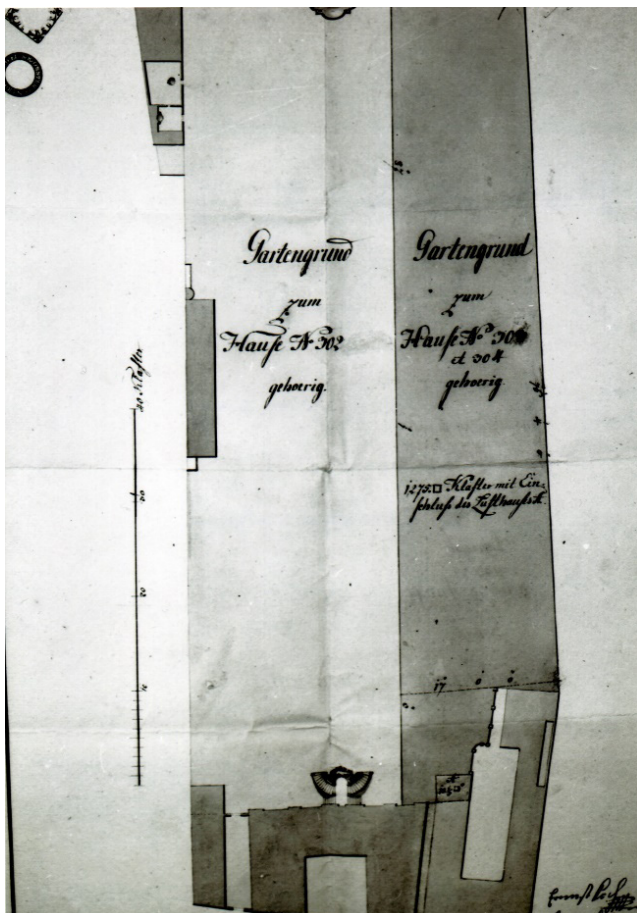 Gartengrund
zum
Hause No 302
gehoerig.
Gartengrund
zum
Hause No
et 304
gehoerig.
1275□ Klafter mit Ein-
schluß des
30 Klafter
20
10
17